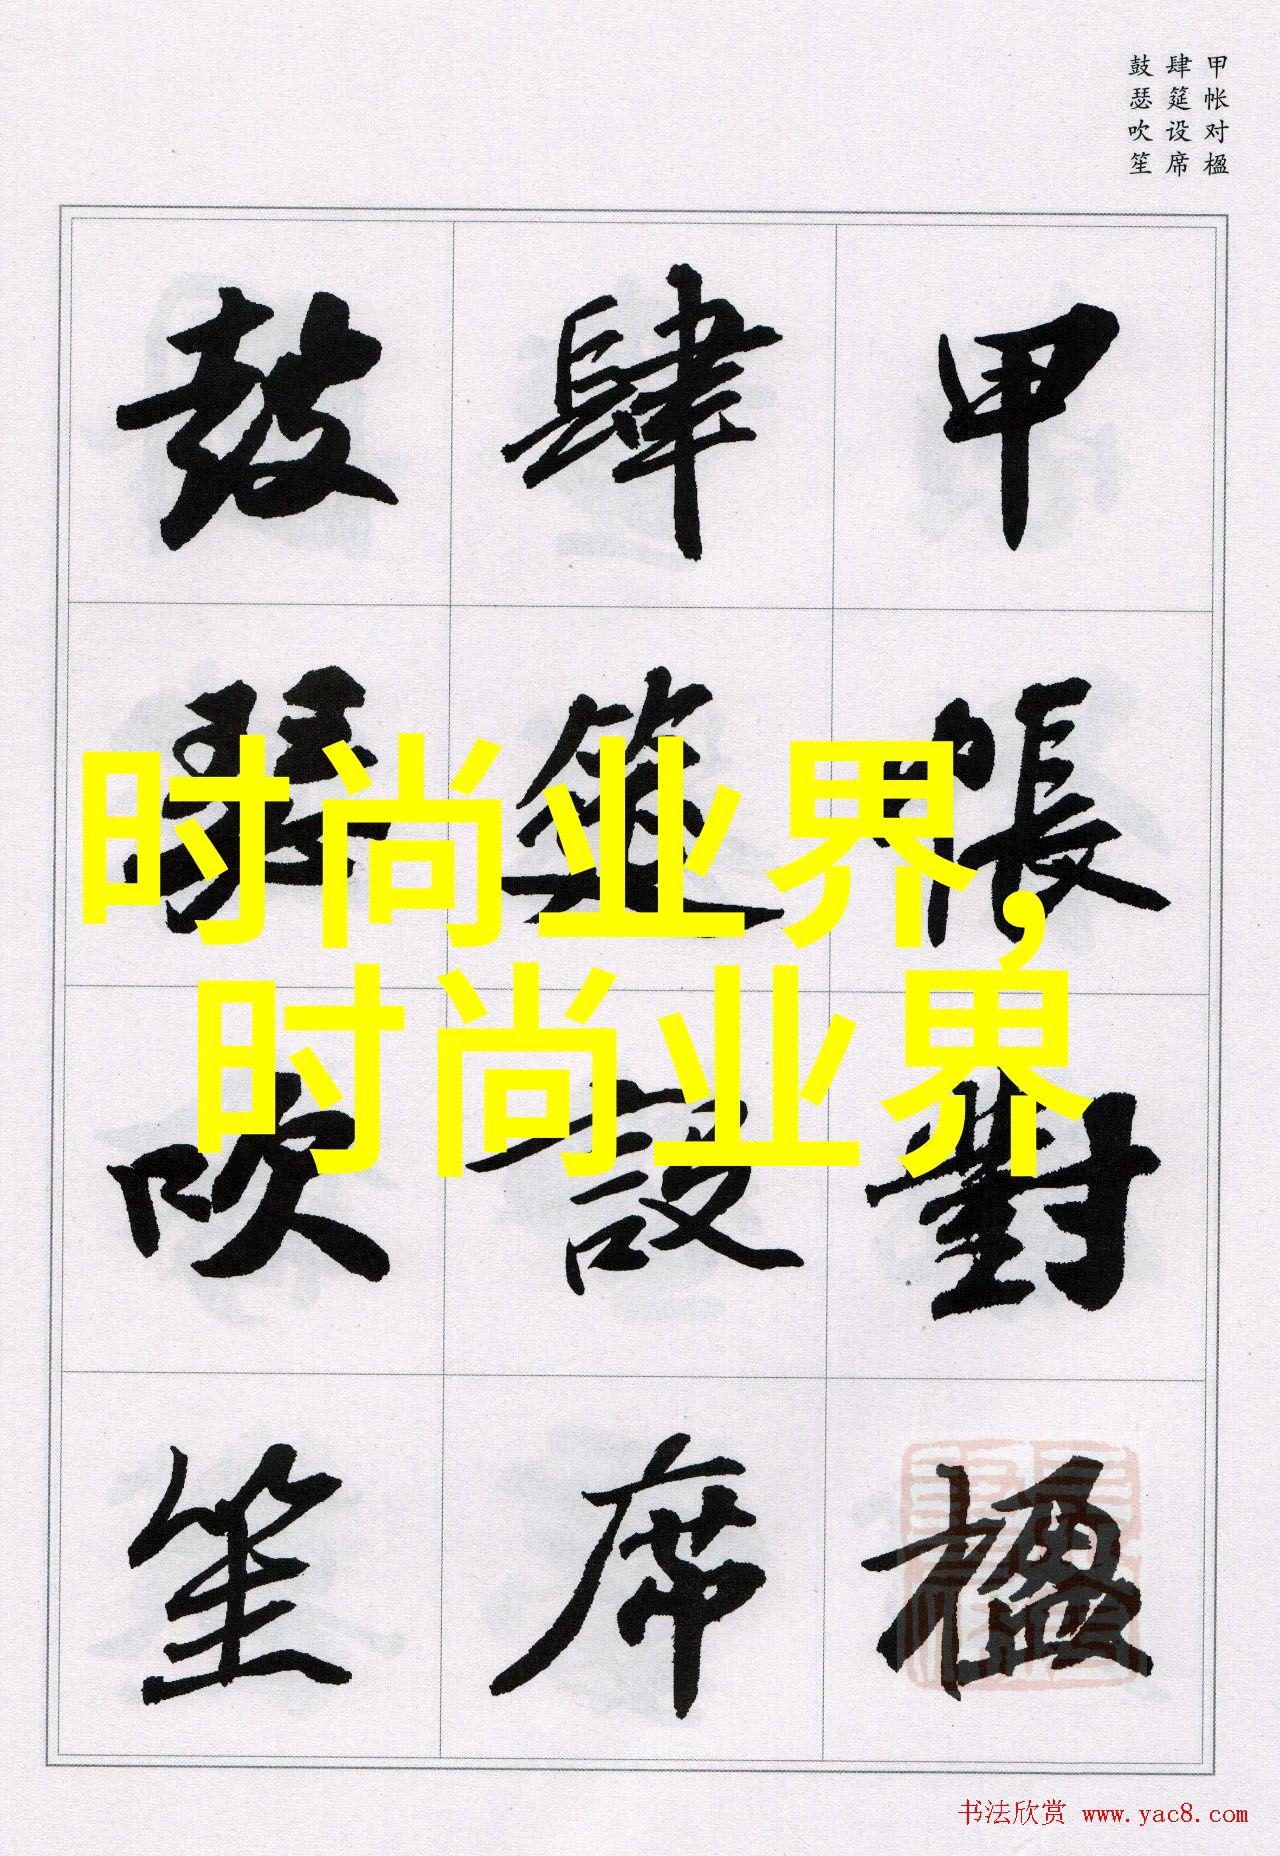 甲帐对楹
肆筵设席
鼓瑟吹笙
甲帳對楹
肆筵設席
鼓瑟吹笙
时尚业界,
时尚业界
书法欣赏 www.yac8.com